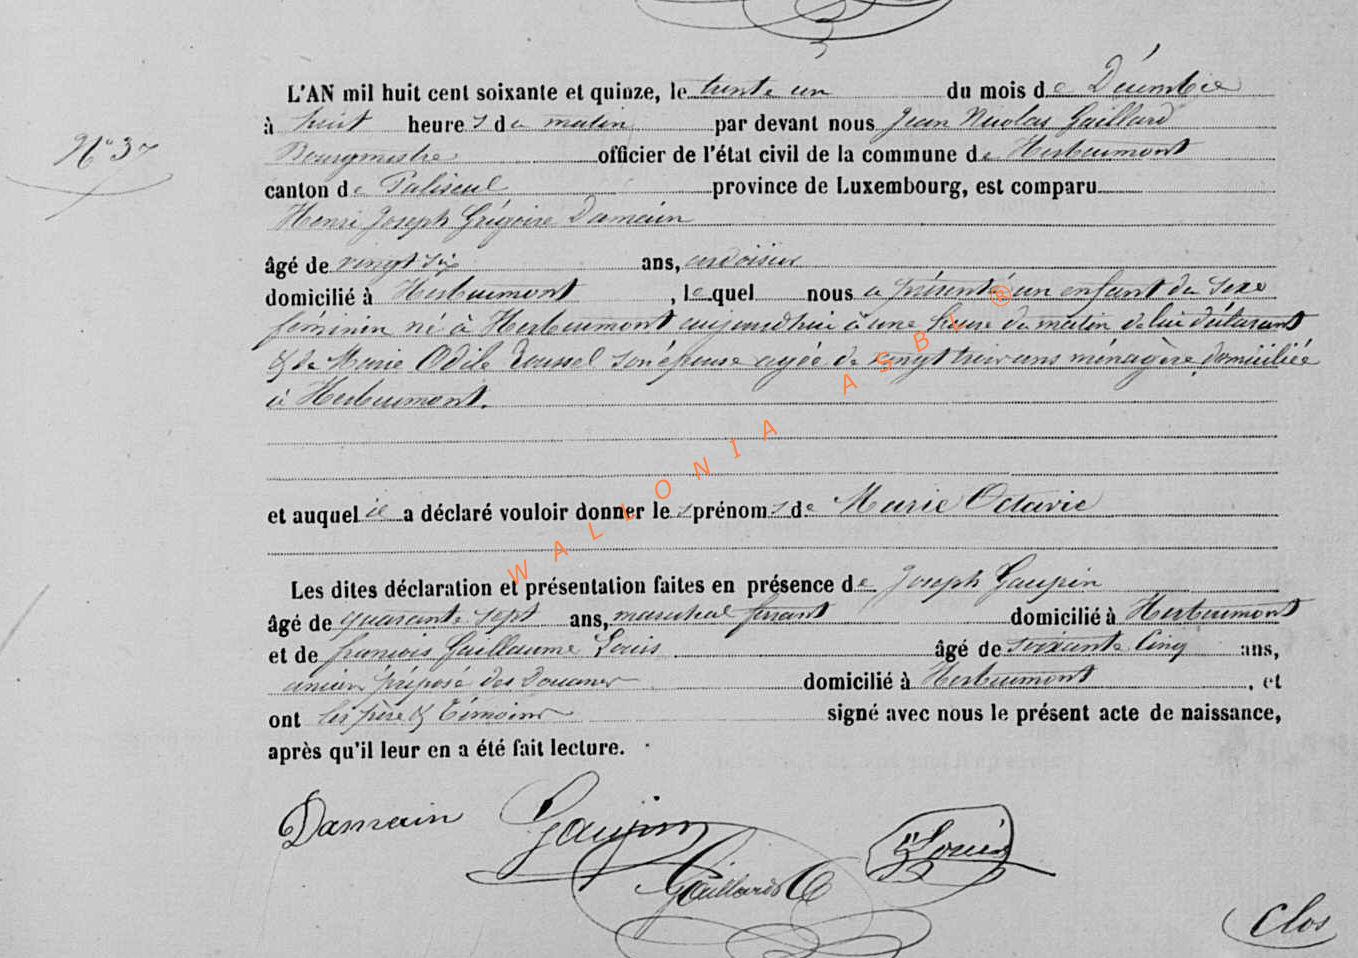 L'AN mil huit cent soixante et quinze, le trente un du mois de Décembre
N° 37
à huit heures du matin par devant nous Jean Nicolas Gaillard
Bourgmestre officier de l'état civil de la commune de Herbeumont
canton de Paliseul province de Luxembourg, est comparu
Henri Joseph Grégoire Damain
âgé de vingt six ans, ardoisier
domicilié à Herbeumont, lequel nous a présenté un enfant du sexe
féminin né à Herbeumont aujourd'hui à une heure du matin de lui déclarant
& de Marie Odile son épouse agée de vingt trois ans ménagère domiciliée
à Herbeumont.
et auquel il a déclaré vouloir donner les prénoms de Marie Octavie
Les dites déclaration et présentation faites en présence de Joseph Gaupin
âgé de quarante sept ans, maréchal ferrant domicilié à Herbeumont
et de françois Guillaume Louis âgé de soixante cinq ans,
ancien préposé des Douanes domicilié à Herbeumont, et
ont les père & témoins signé avec nous le présent acte de naissance,
après qu'il leur en a été fait lecture.
Damain Gaupin Louis
Gaillard
Clos
WALLONIA ASBL ®